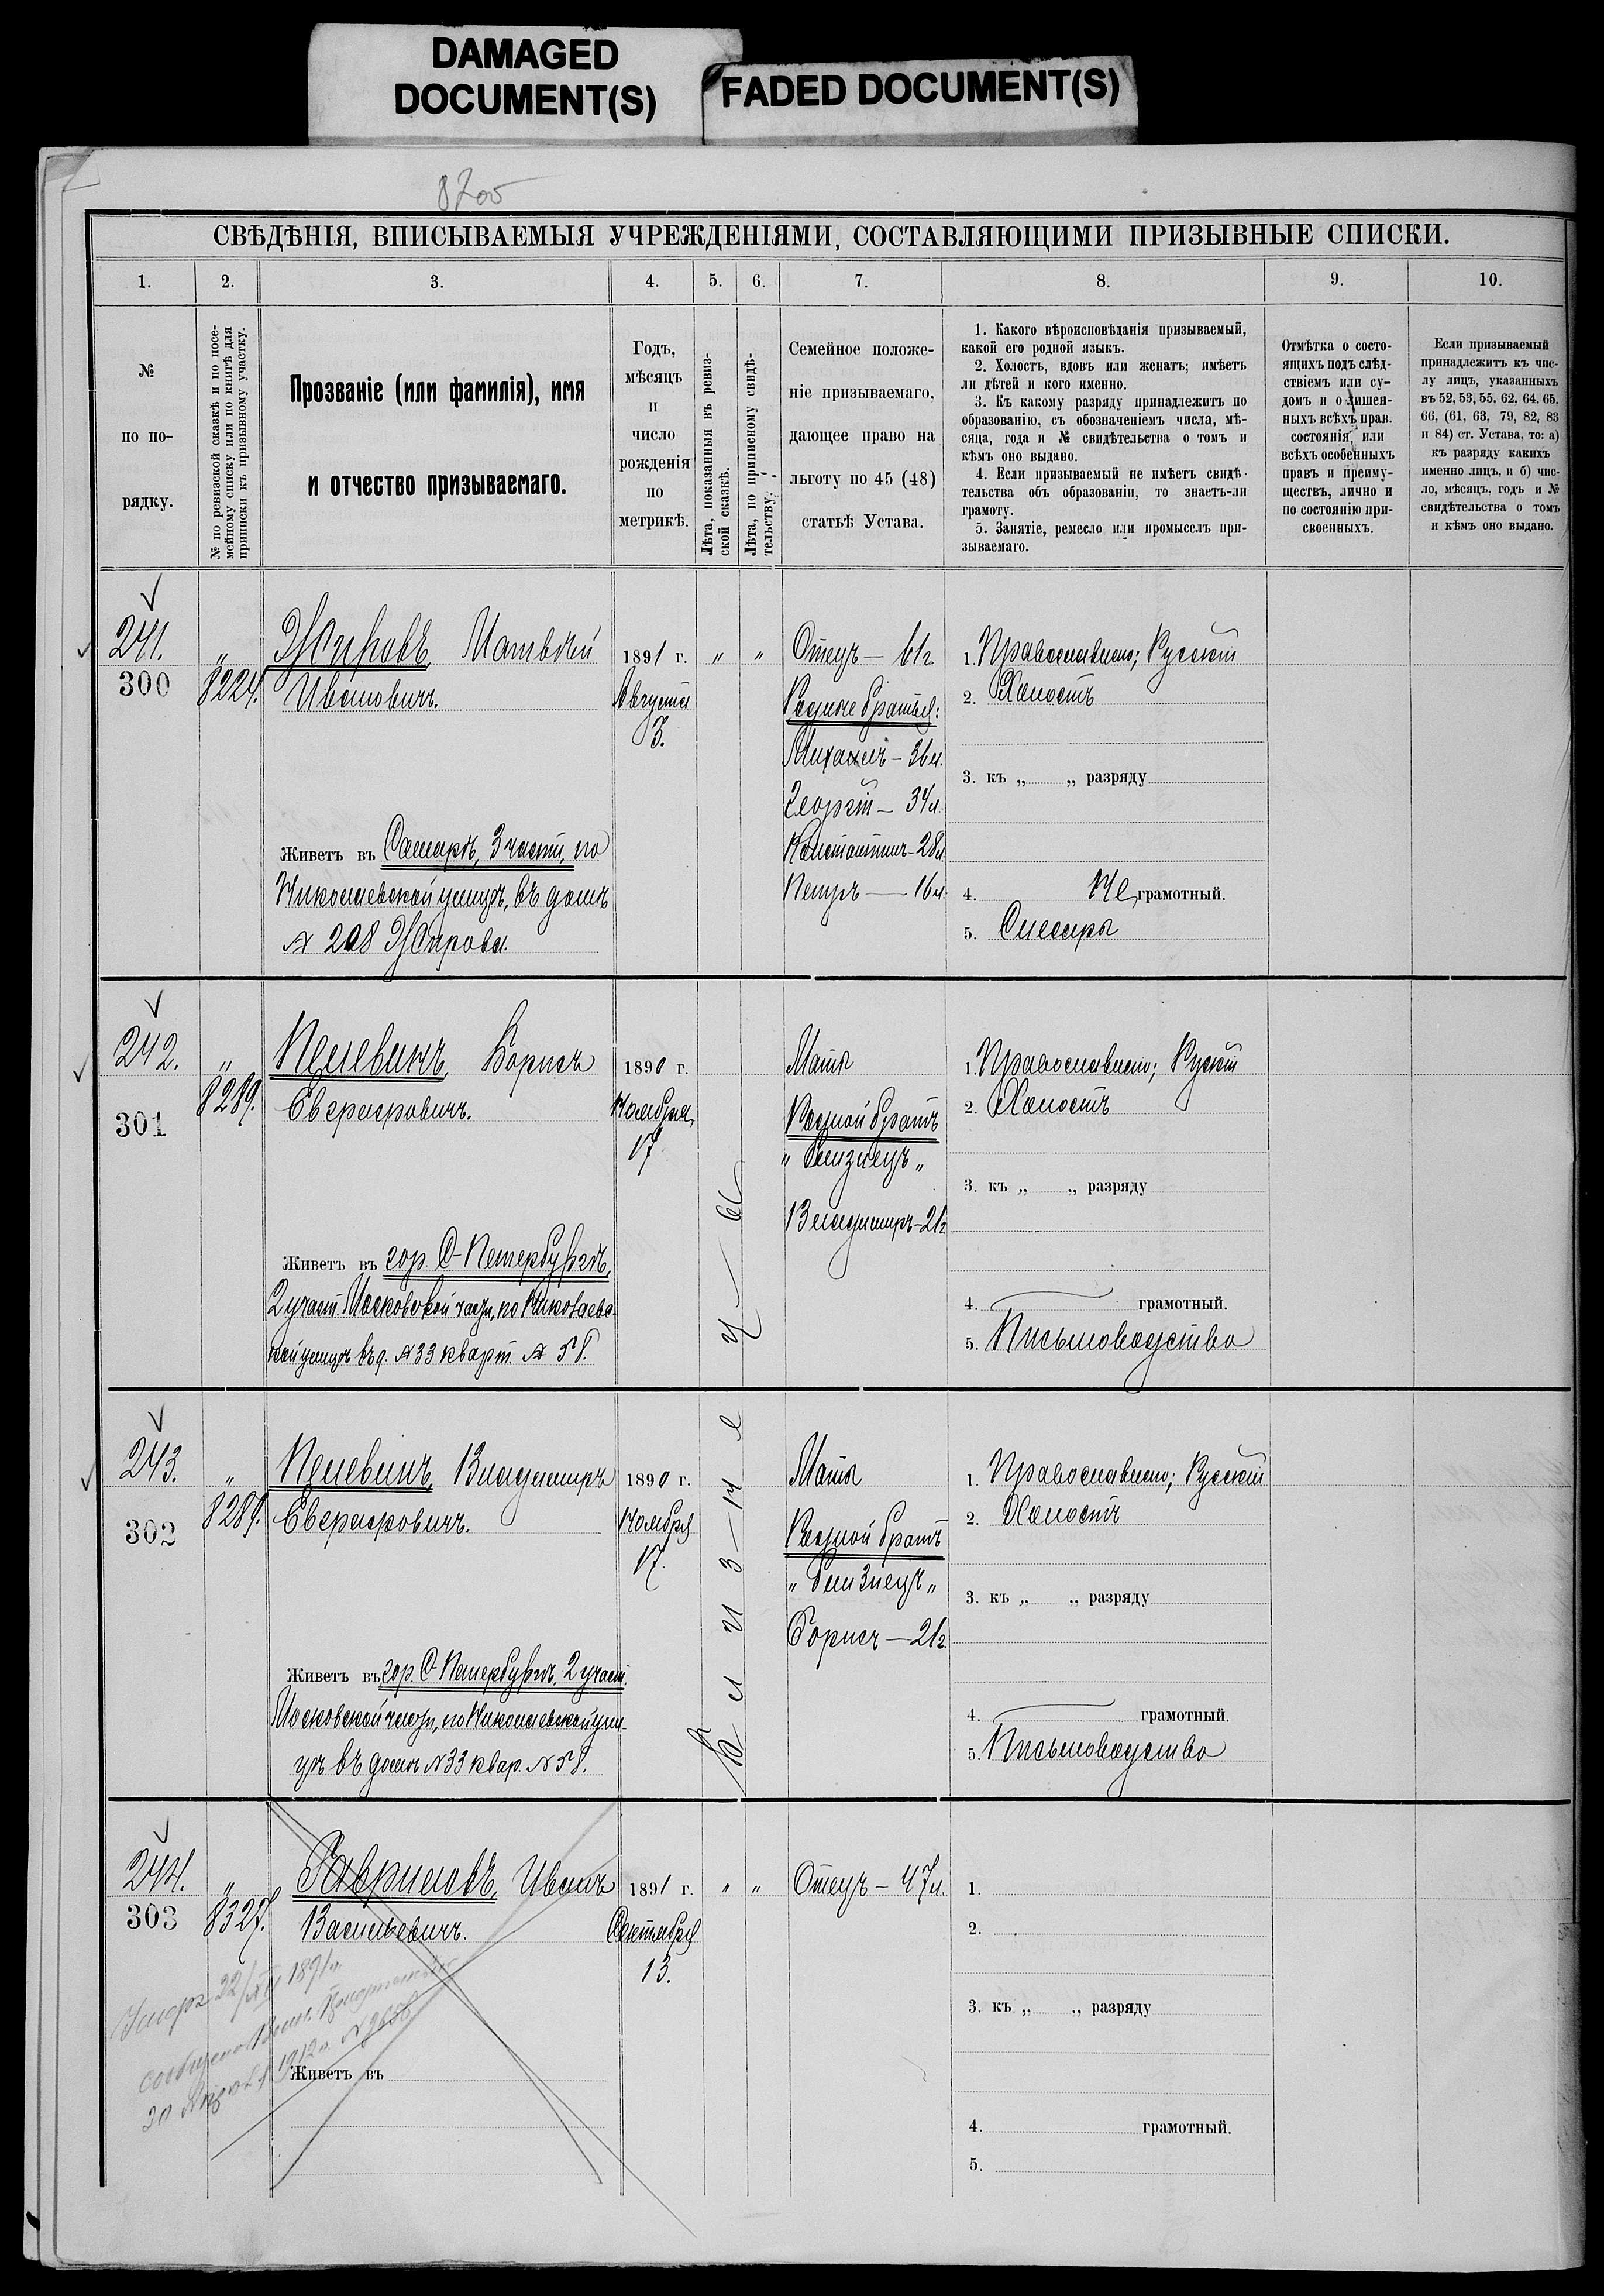 DAMAGED
DOCUMENT(S)
FADED DOCUMENT(S)
8700
СВѢДѢНІЯ, ВПИСЫВАЕМЫЯ УЧРЕЖДЕНІЯМИ, СОСТАВЛЯЮЩИМИ ПРИЗЫВНЫЕ СПИСКИ.
1. 2. 3. 4. 5. 6. 7. 8. 9. 10.
№
по по-
рядку.
№ по ревизской сказкѣ и по посе-
мейному списку или по книгѣ для
приписки къ призывному участку.
Прозваніе (или фамилія), имя
и отчество призываемаго.
Годъ,
мѣсяцъ
и
число
рожденія
по
метрикѣ.
Лѣта, показанныя въ ревиз-
ской сказкѣ.
Лѣта, по приписному свидѣ-
тельству.
Семейное положе-
ніе призываемаго,
дающее право на
льготу по 45 (48)
статьѣ Устава.
1. Какого вѣроисповѣданія призываемый,
какой его родной языкъ.
2. Холостъ, вдовъ или женатъ; имѣетъ
ли дѣтей и кого именно.
3. Къ какому разряду принадлежитъ по
образованію, съ обозначеніемъ числа, мѣ-
сяца, года и № свидѣтельства о томъ и
кѣмъ оно выдано.
4. Если призываемый не имѣетъ свидѣ-
тельства объ образованіи, то знаетъ-ли
грамоту.
5. Занятіе, ремесло или промыселъ при-
зываемаго.
Отмѣтка о состо-
ящихъ подъ слѣд-
ствіемъ или су-
домъ и о лишен-
ныхъ всѣхъ прав.
состоянія, или
всѣхъ особенныхъ
правъ и преиму-
ществъ, лично и
по состоянію при-
своенныхъ.
Если призываемый
принадлежитъ къ чис-
лу лицъ, указанныхъ
въ 52, 53, 55, 62, 64, 65,
66, (61, 63, 79, 82, 83
и 84) ст. Устава, то: а)
къ разряду какихъ
именно лицъ, и б) чис-
ло, мѣсяцъ, годъ и №
свидѣтельства о томъ
и кѣмъ оно выдано.
241.
300
„
8224.
Жировъ, Матвѣй
Ивановичъ.
Живетъ въ Самарѣ, 3 части, по
Николаевской улицѣ, въ домѣ
№ 208 Жирова.
1891 г.
Августа
3.
„ „
Отецъ — 61г.
Родные братья:
Михаилъ — 36л.
Георгій — 34л.
Константинъ — 28л.
Петръ — 16л.
1. Православное; Русскій
2. Холостъ
3. къ „ „ разряду
4. Не грамотный.
5. Слесарь
242.
301
„
8289.
Пелевинъ, Борисъ
Евграфовичъ.
Живетъ въ гор. С-Петербургѣ,
2 участ. Московской части, по Николаевс-
кой улицѣ въ д. № 33 кварт. № 58.
1890 г.
Ноября
17
Мать
Родной братъ
„ близнецъ „
Владимиръ — 21г.
1. Православное; Русскій
2. Холостъ
3. къ „ „ разряду
4. грамотный.
5. Письмоводство
Близнецы
243.
302
„
8289.
Пелевинъ, Владимиръ
Евграфовичъ.
Живетъ въ гор. С-Петербургѣ, 2 участ.
Московской части, по Николаевской ули-
цѣ въ домѣ № 33 квар. № 58.
1890 г.
Ноября
17.
Мать
Родной братъ
„ близнецъ „
Борисъ — 21г.
1. Православное; Русскій
2. Холостъ
3. къ „ „ разряду
4. грамотный.
5. Письмоводство
244.
303
„
8327.
Гавриловъ, Иванъ
Васильевичъ.
Живетъ въ
1891 г.
Сентября
13.
„ „
Отецъ — 47л.
1.
2.
3. къ „ „ разряду
4. грамотный.
5.
Умеръ 22/XII 1891 г.
сообщено
1912 г.